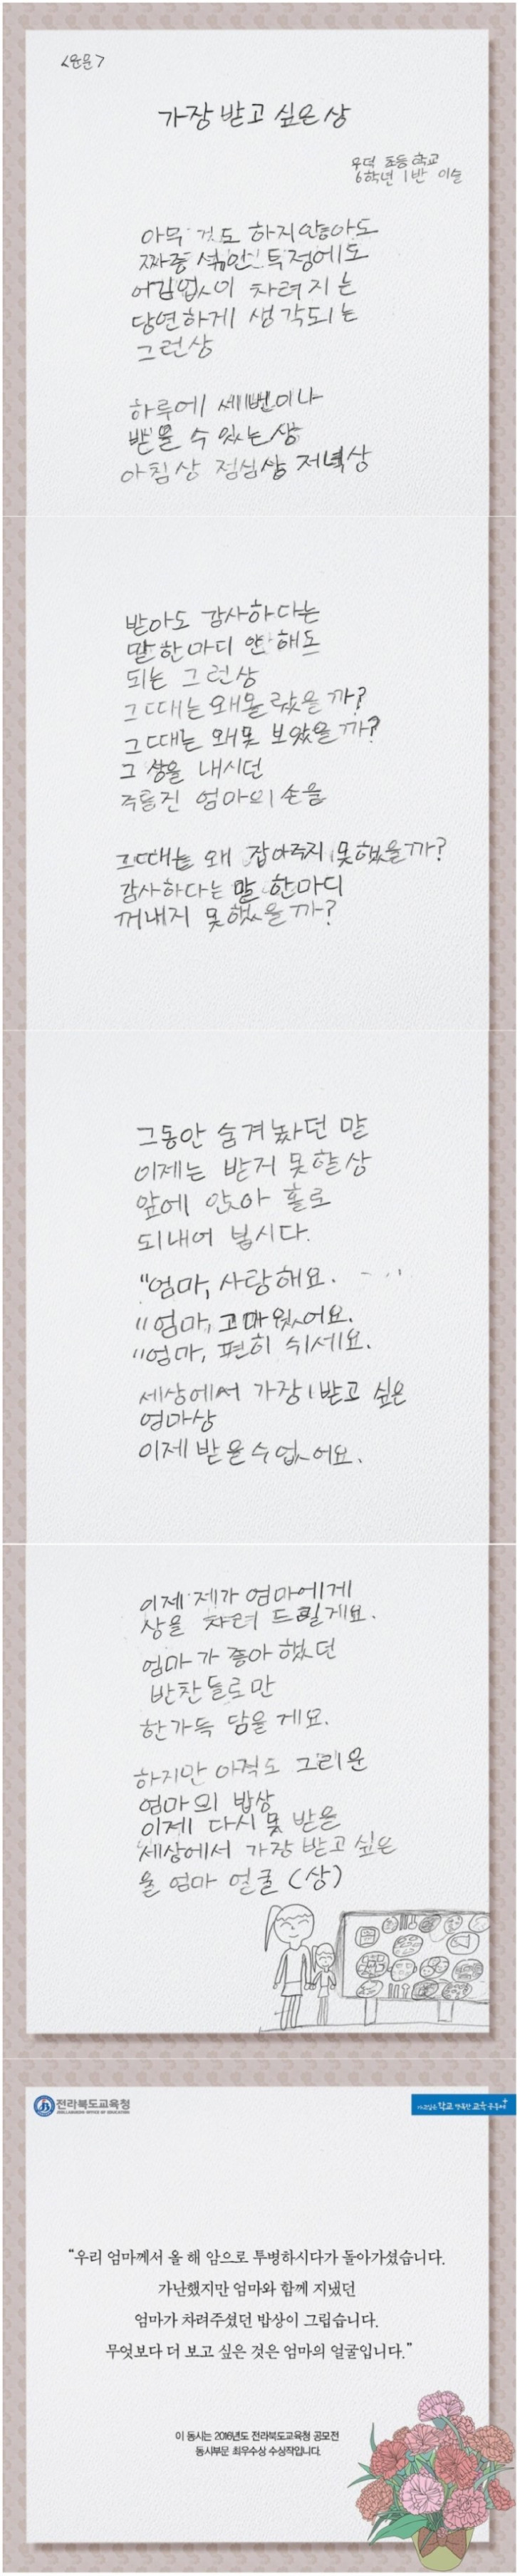 <운문>
가장 받고 싶은 상
우덕 초등학교
6학년 1반 이슬
아무 것도 하지 않아도
짜증 섞인 투정에도
어김없이 차려지는
당연하게 생각되는
그런상
하루에 세번이나
받을 수 있는 상
아침상 점심상 저녁상
받아도 감사하다는
말 한마디 안 해도
되는 그런상
그때는 왜몰랐을까?
그때는 왜못 보았을까?
그 상을 내시던
주름진 엄마의 손을
그때는 왜 잡아주지 못했을까?
감사하다는 말 한마디
꺼내지 못했을까?
그동안 숨겨놨던 말
이제는 받지 못할상
앞에 앉아 홀로
되내어 봅시다.
"엄마, 사랑해요.
"엄마, 고마웠어요.
"엄마, 편히 쉬세요.
세상에서 가장 받고 싶은
엄마상
이제 받을수 없어요.
이제 제가 엄마에게
상을 차려 드릴게요.
엄마가 좋아했던
반찬들로만
한가득 담을게요.
하지만 아직도 그리운
엄마의 밥상
이제 다시 못 받을
세상에서 가장 받고 싶은
울 엄마 얼굴 (상)
전라북도교육청
JEOLLABUKDO OFFICE OF EDUCATION
가고싶은 학교 행복한 교육공동체
"우리 엄마께서 올 해 암으로 투병하시다가 돌아가셨습니다.
가난했지만 엄마와 함께 지냈던
엄마가 차려주셨던 밥상이 그립습니다.
무엇보다 더 보고 싶은 것은 엄마의 얼굴입니다."
이 동시는 2016년도 전라북도교육청 공모전
동시부문 최우수상 수상작입니다.